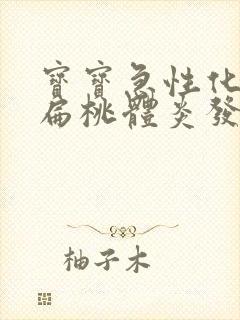 寶寶急性化
扁桃體炎發
柚子木